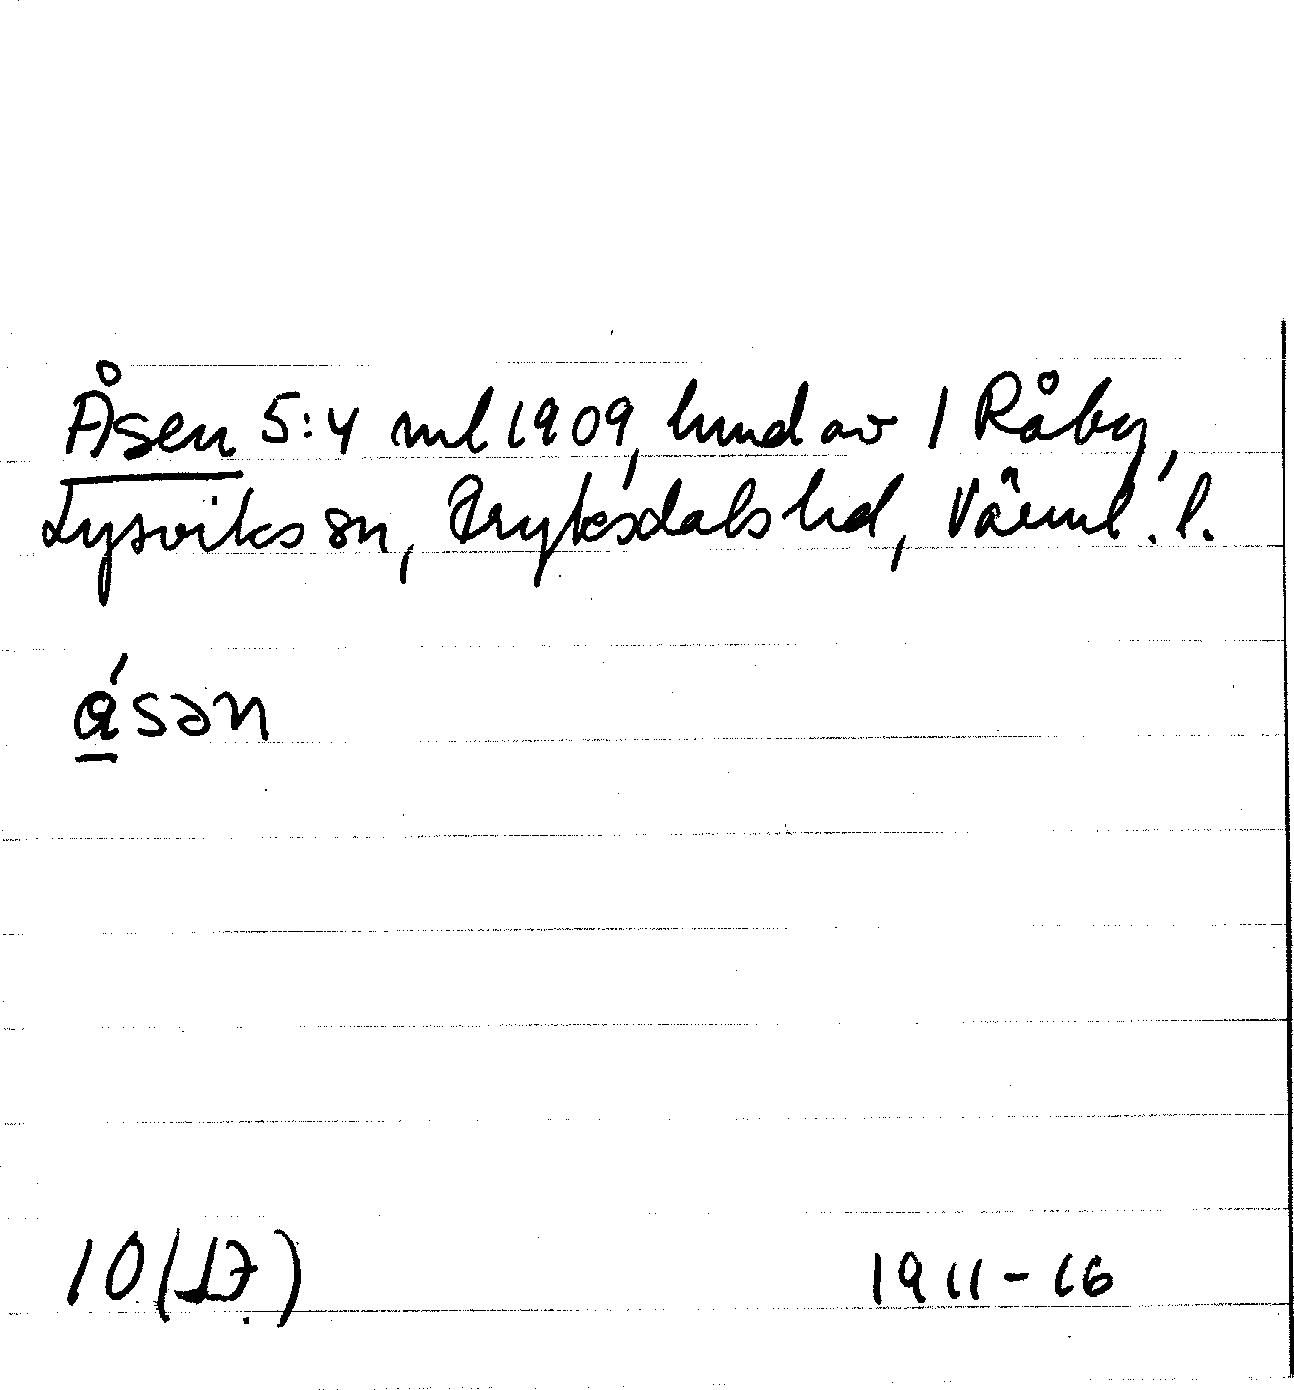 Åsen 5:4 ml 1909, hmd av 1 Råby,
Lysviks sn, Fryksdals hd, Värml. l.
ásən
10 (17.) 1911-16